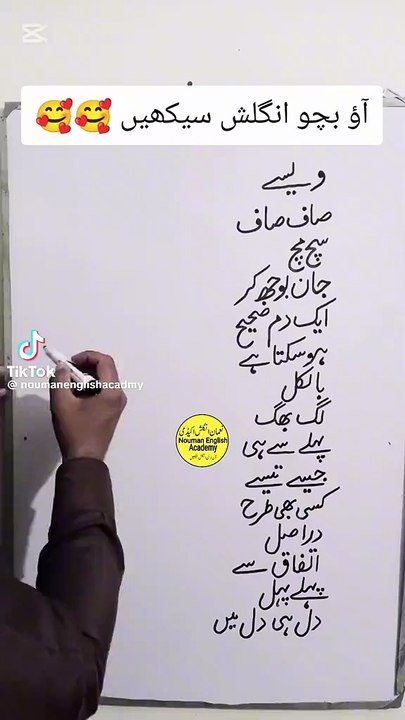 آؤ بچو انگلش سیکھیں 🥰🥰
ویسے
صاف صاف
سچ مچ
جان بوجھ کر
ایک دم صحیح
ہوسکتا ہے
بالکل
لگ بھگ
پہلے سے ہی
جیسے تیسے
کسی بھی طرح
دراصل
اتفاق سے
پہلے پہل
دل ہی دل میں
TikTok
@noumanenglishacadmy
نعمان انگلش اکیڈمی
Nouman English
Academy